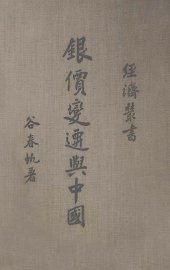 經濟叢書
銀價變遷與中國
谷春帆著